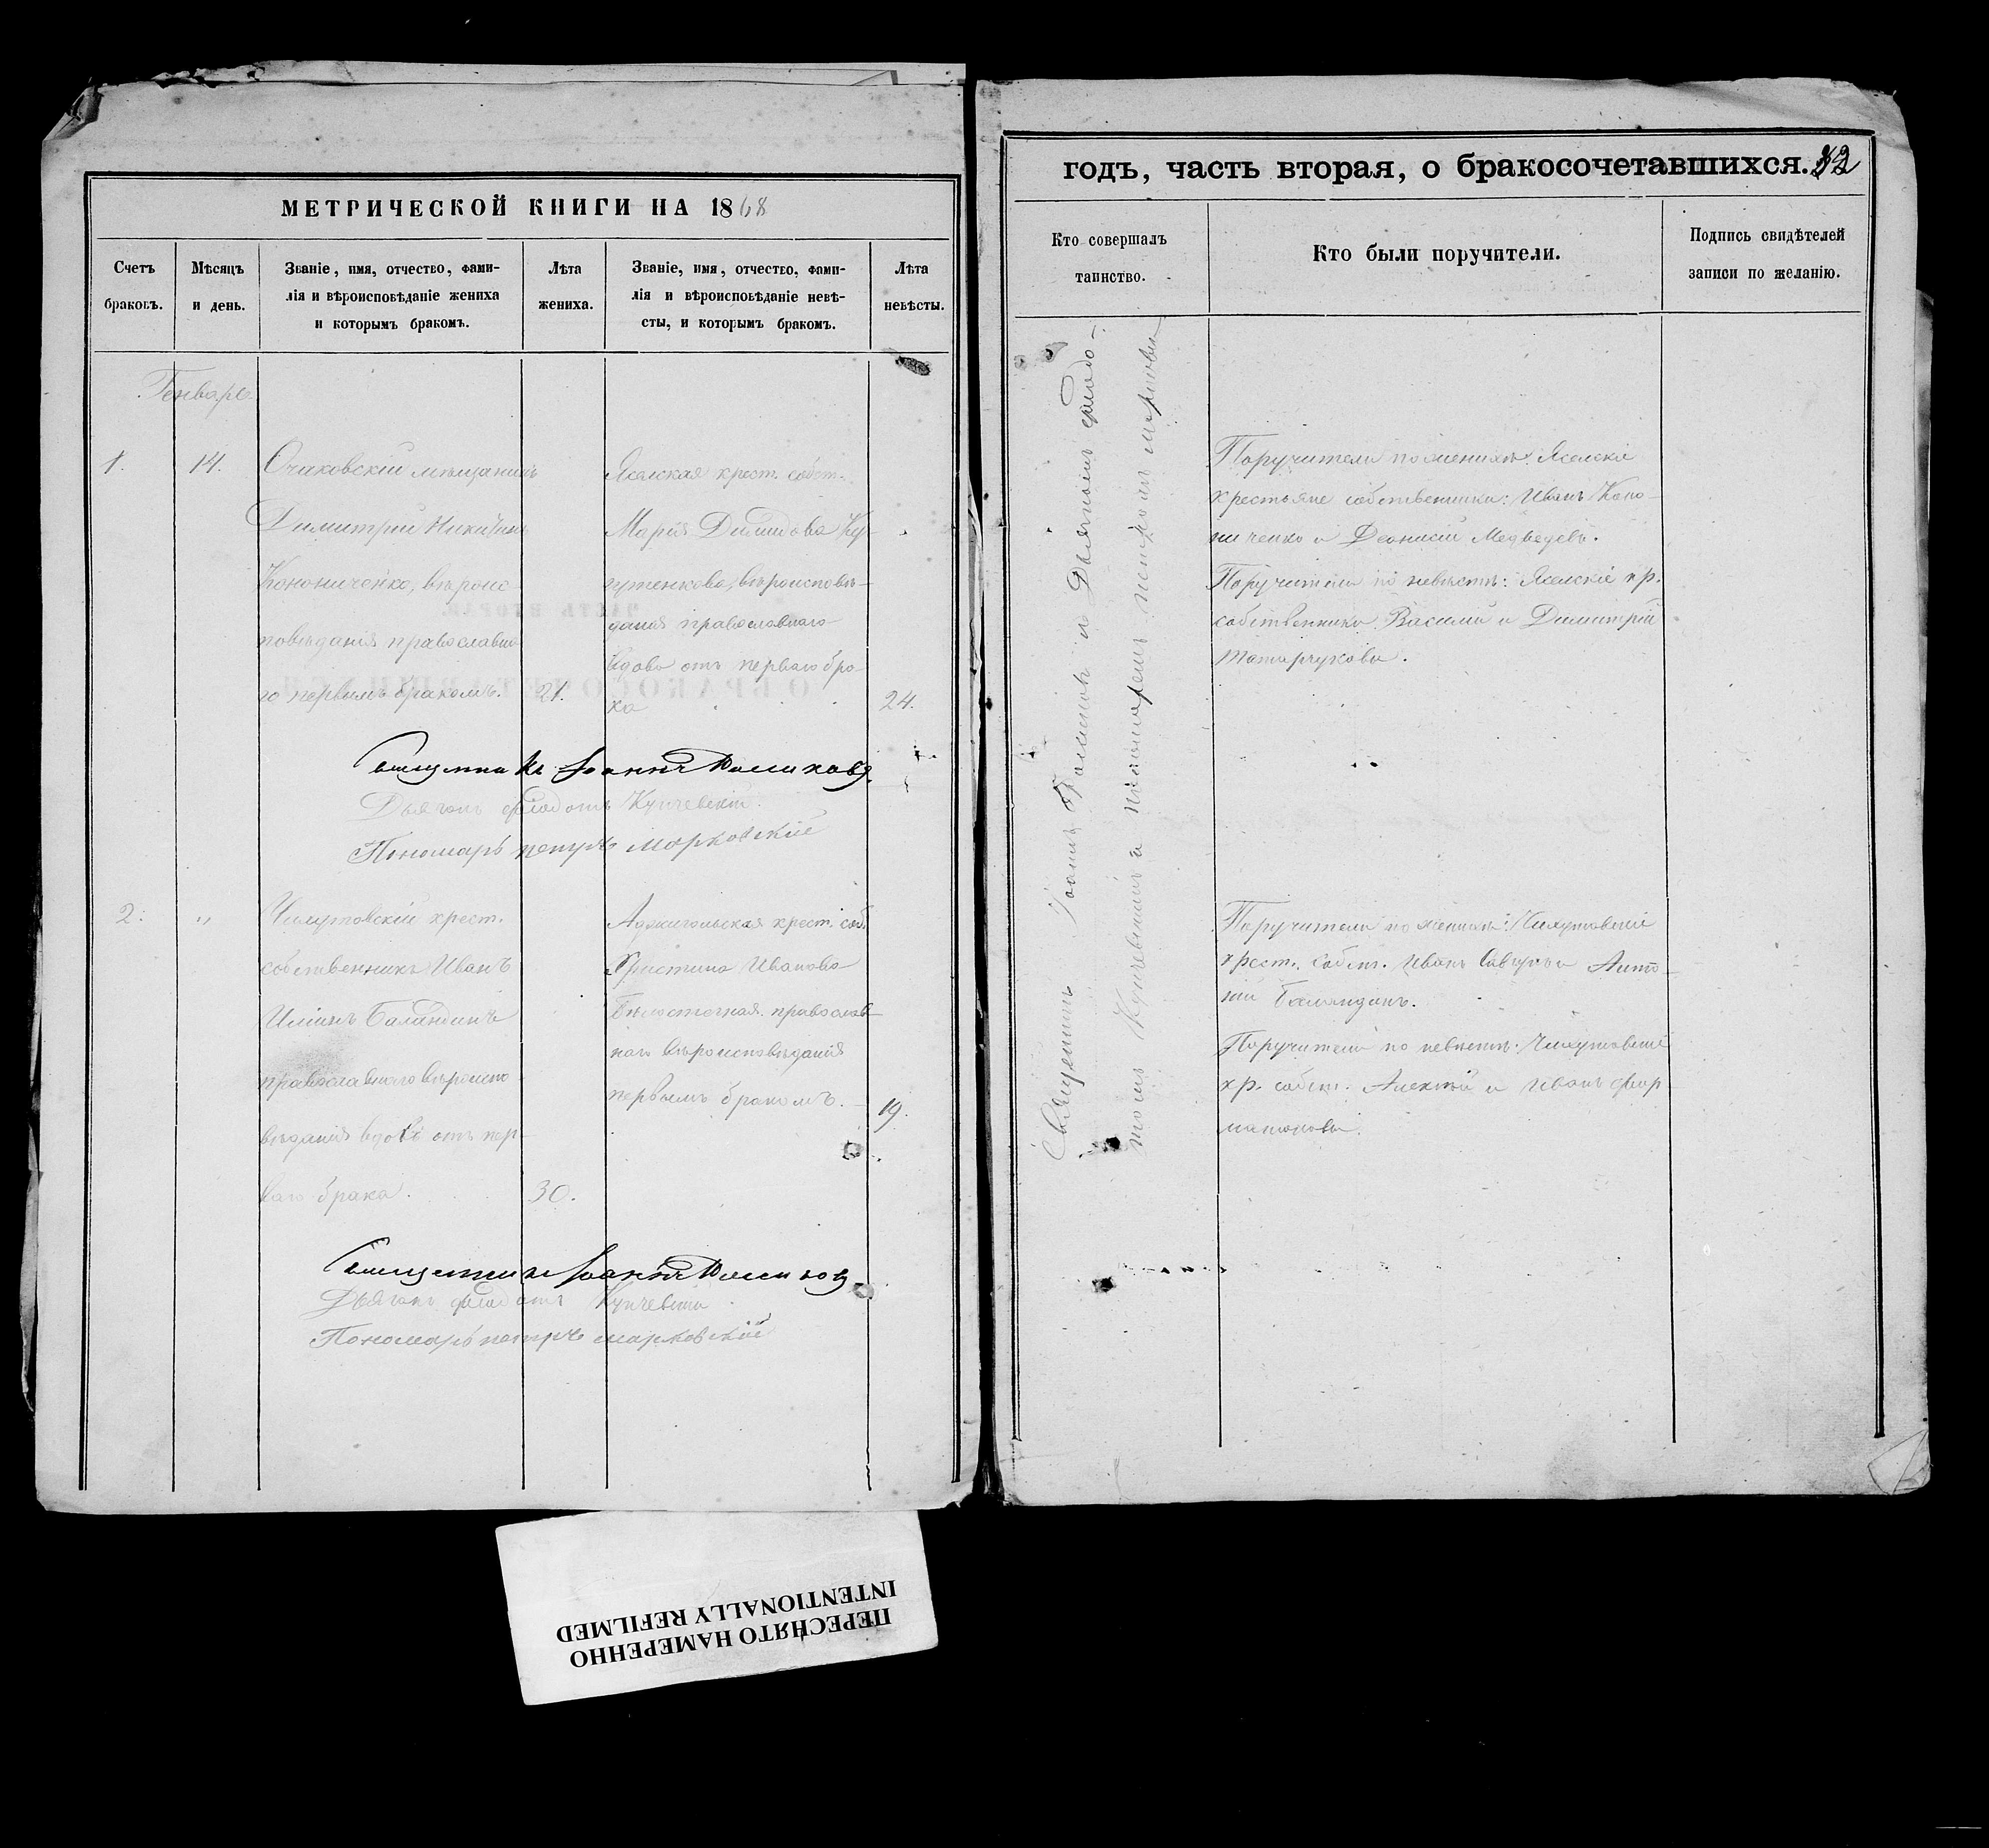 МЕТРИЧЕСКОЙ КНИГИ НА 1868
Счетъ браковъ.
Мѣсяцъ и день.
Званіе, имя, отчество, фами-
лія и вѣроисповѣданіе жениха
и которымъ бракомъ.
Лѣта жениха.
Званіе, имя, отчество, фами-
лія и вѣроисповѣданіе невѣ-
сты, и которымъ бракомъ.
Лѣта невѣсты.
Генварь
1.
14.
Очаковскій мѣщанинъ
Димитрий Никитинъ
Конониченко, вѣроис
повѣданія православна
го первымъ бракомъ.
21.
Яселская крест. собст.
Марія Димидова
вѣроисповѣ-
данія православнаго
вдова отъ перваго бра-
ка
24.
Священникъ Іоаннъ
Дьячокъ Федотъ Купчевскій
Пономарь петръ марковский
2.
"
Чилутовскій крест.
собственникъ Иванъ
Илиинъ Баландинъ
православнаго вѣроиспо
вѣданія вдовъ отъ пер-
ваго брака.
30.
Аджигольская крест. соб.
Христина Иванова
православ-
наго вѣроисповѣданія
первымъ бракомъ.
19.
Священникъ Іоаннъ
Дьячокъ Федотъ Купчевскій
Пономарь петръ марковский
годъ, часть вторая, о бракосочетавшихся.
Кто совершалъ
таинство.
Кто были поручители.
Подпись свидѣтелей
записи по желанію.
Священникъ Іоаннъ съ Дьячкомъ Федо-
томъ Купчевскимъ и пономаремъ петромъ марковским
Поручители по женихѣ: Яселскіе
крестьяне собственники: Иванъ Коно-
ниченко и Деонисій Медведевъ.
Поручители по невѣстѣ: Яселскіе кр.
собственники Василий и Димитрій
Татарчукови.
Поручители по женихѣ: Чилутовскіе
крест. собст. Иванъ и Анто-
ній Баландинъ.
Поручители по невѣстѣ: Чилутовскіе
кр. собст. Алексѣй и Иванъ
ПЕРЕСНЯТО НАМЕРЕННО
INTENTIONALLY REFILMED